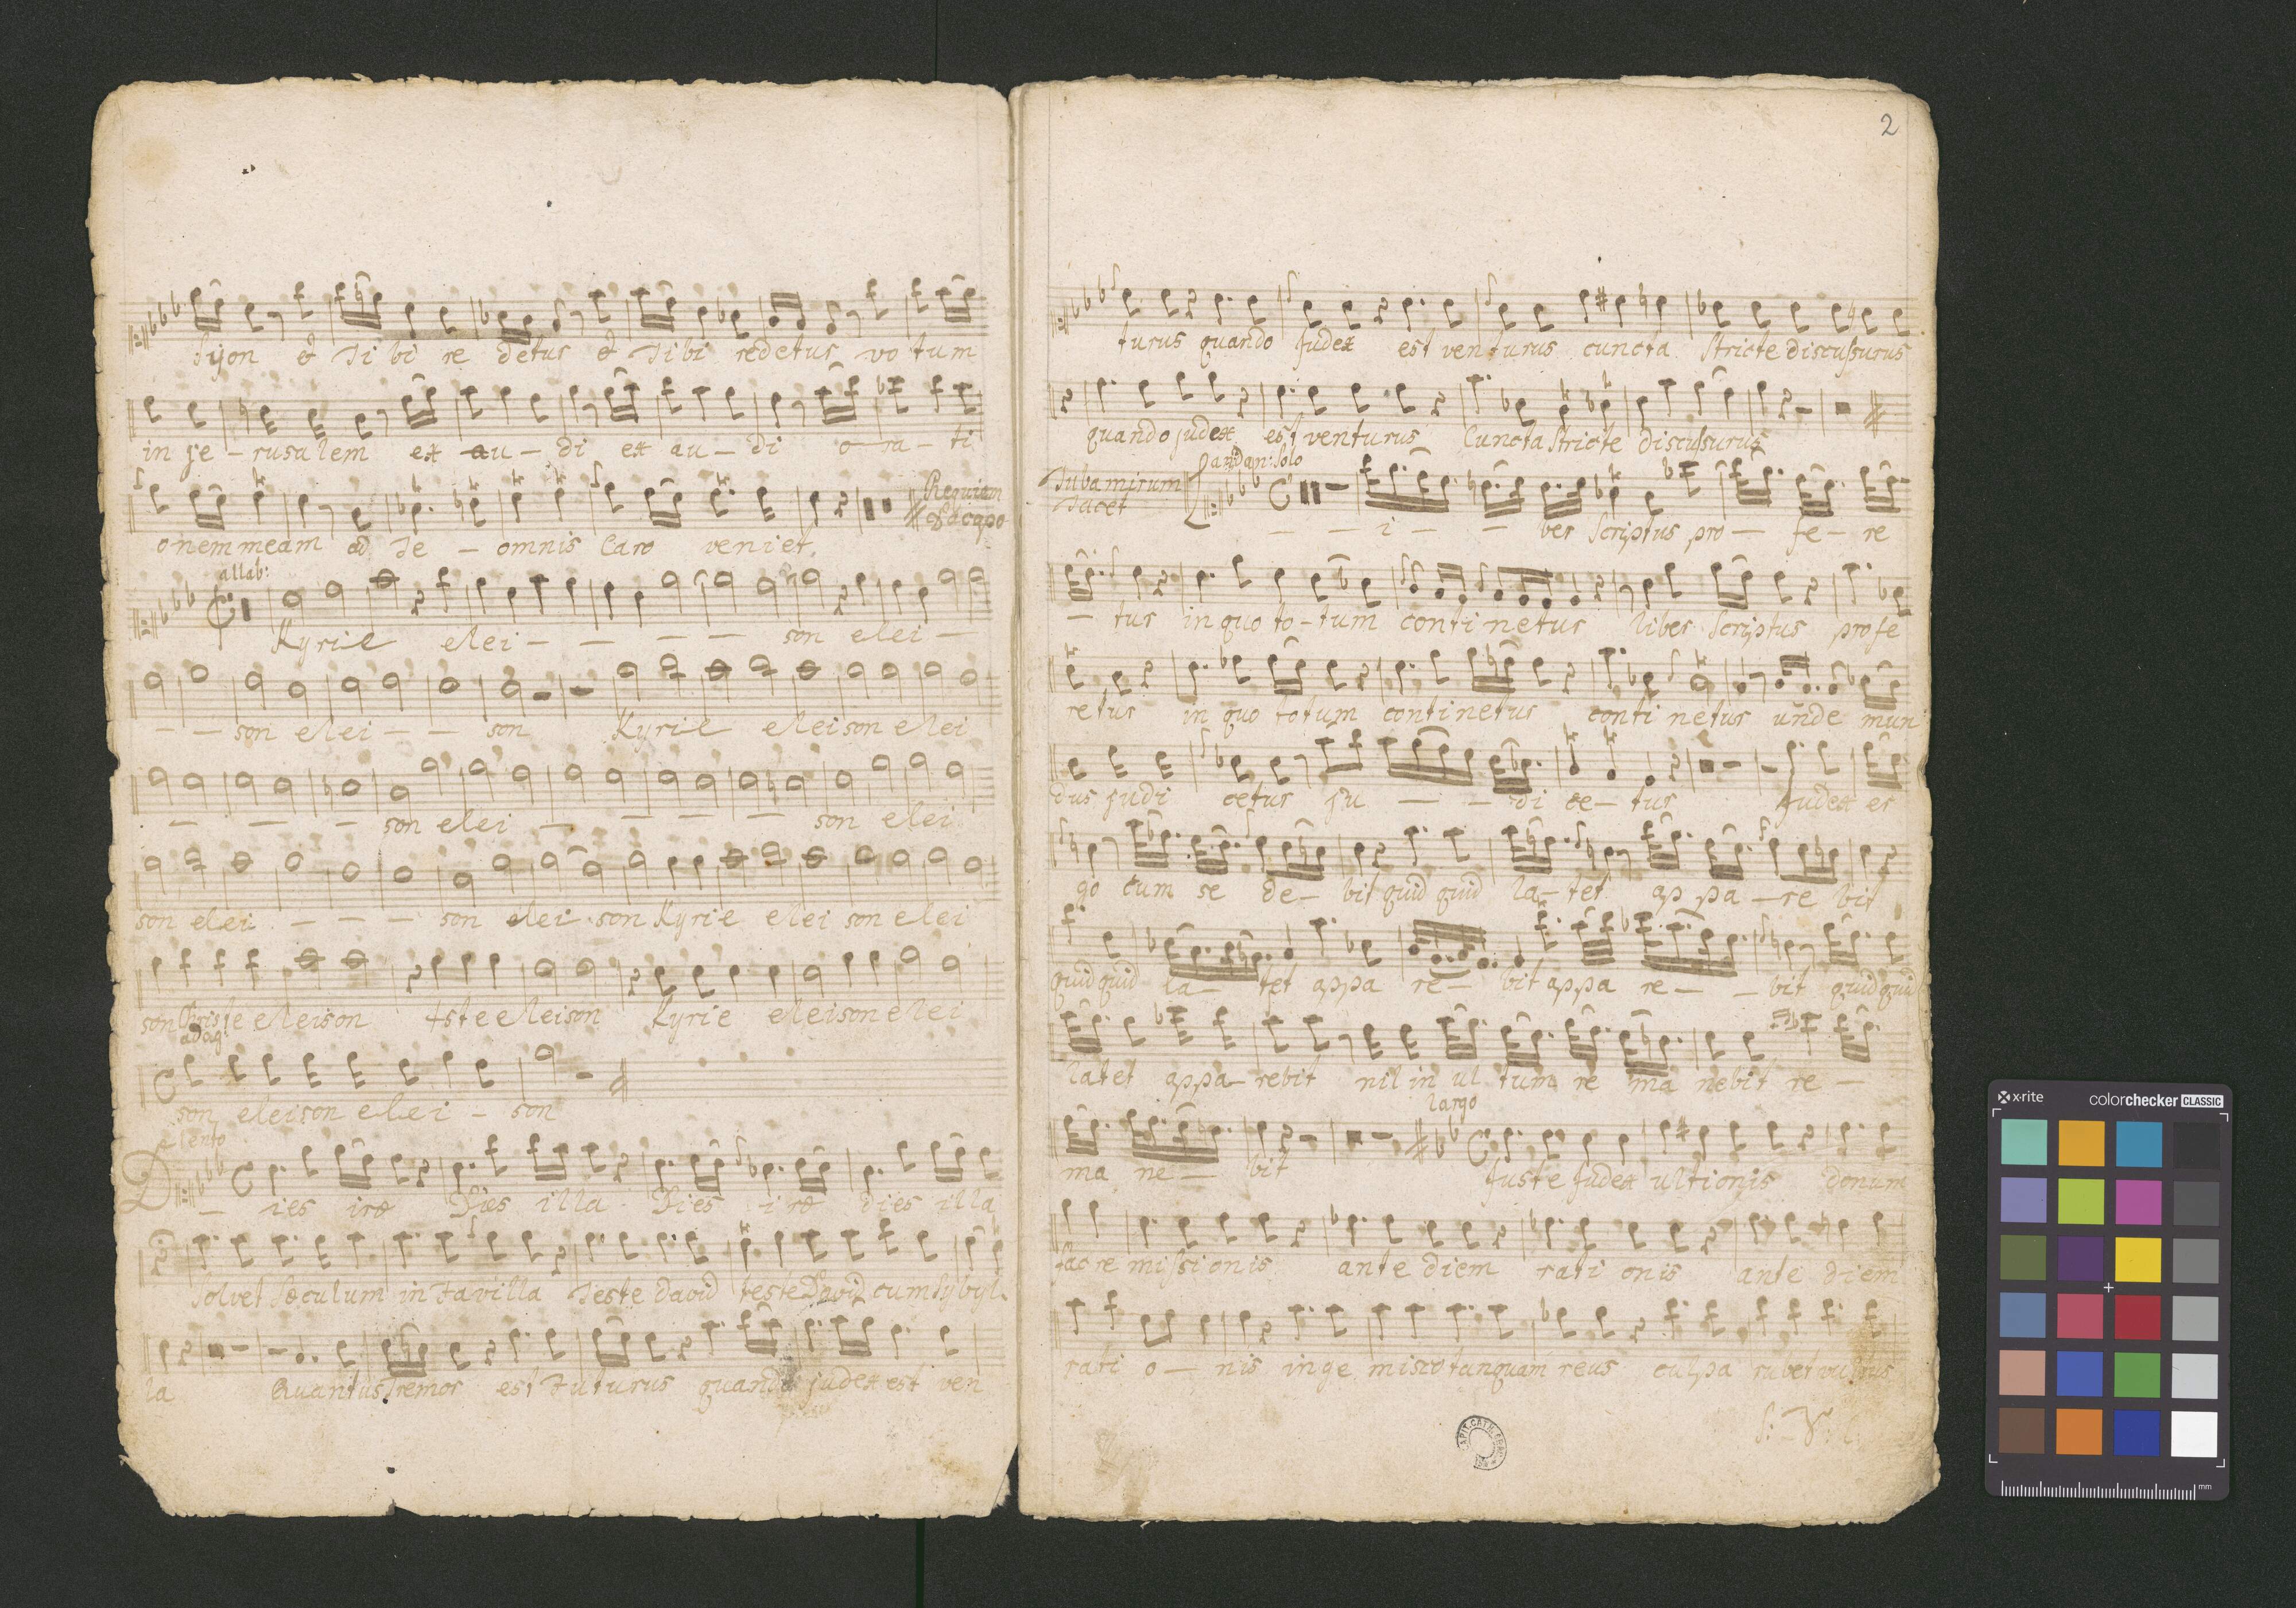 Syon & Tibi re detur & Tibi redetur votum
in Je - rusalem ex au - di ex au - di o - ra - ti
onem meam ad Te - omnis Caro veniet
Requiem
Da capo
allab:
Kyrie elei - - - - son elei -
- - son elei - - son Kyrie eleison elei
- - - son elei - - - - son elei
son elei - - - son elei son Kyrie elei son elei
son Christe eleison Xste eleison Kyrie eleison elei
adag:
son eleison elei - son
Lento
D - ies iræ Dies illa Dies iræ dies illa
Solvet Sæculum in Favilla Teste David teste David cum Sybyl
la Quantus tremor est Futurus quando judex est ven
2
turus quando Judex est venturus cuncta stricte discussurus
quando judex est venturus Cuncta stricte discussurus
Tuba mirum
Tacet
andan: Solo
L - - i - - ber scriptus pro - fe - re
- tur in quo to - tum continetur liber scriptus profe
retur in quo totum continetur conti netur unde mun
dus judi cetur ju - - di ce - tur Judex er
go cum se de - bit quid quid la - tet ap pa - re bit
quid quid la - tet appa re - bit appa re - - bit quid quid
latet appa - rebit nil in ul tum re ma nebit re -
largo
ma ne - bit Juste Judex ultionis donum
fac re missionis ante diem rati onis ante diem
rati o - nis inge misco tanquam reus culpa rubet vultus
x-rite
colorchecker CLASSIC
mm